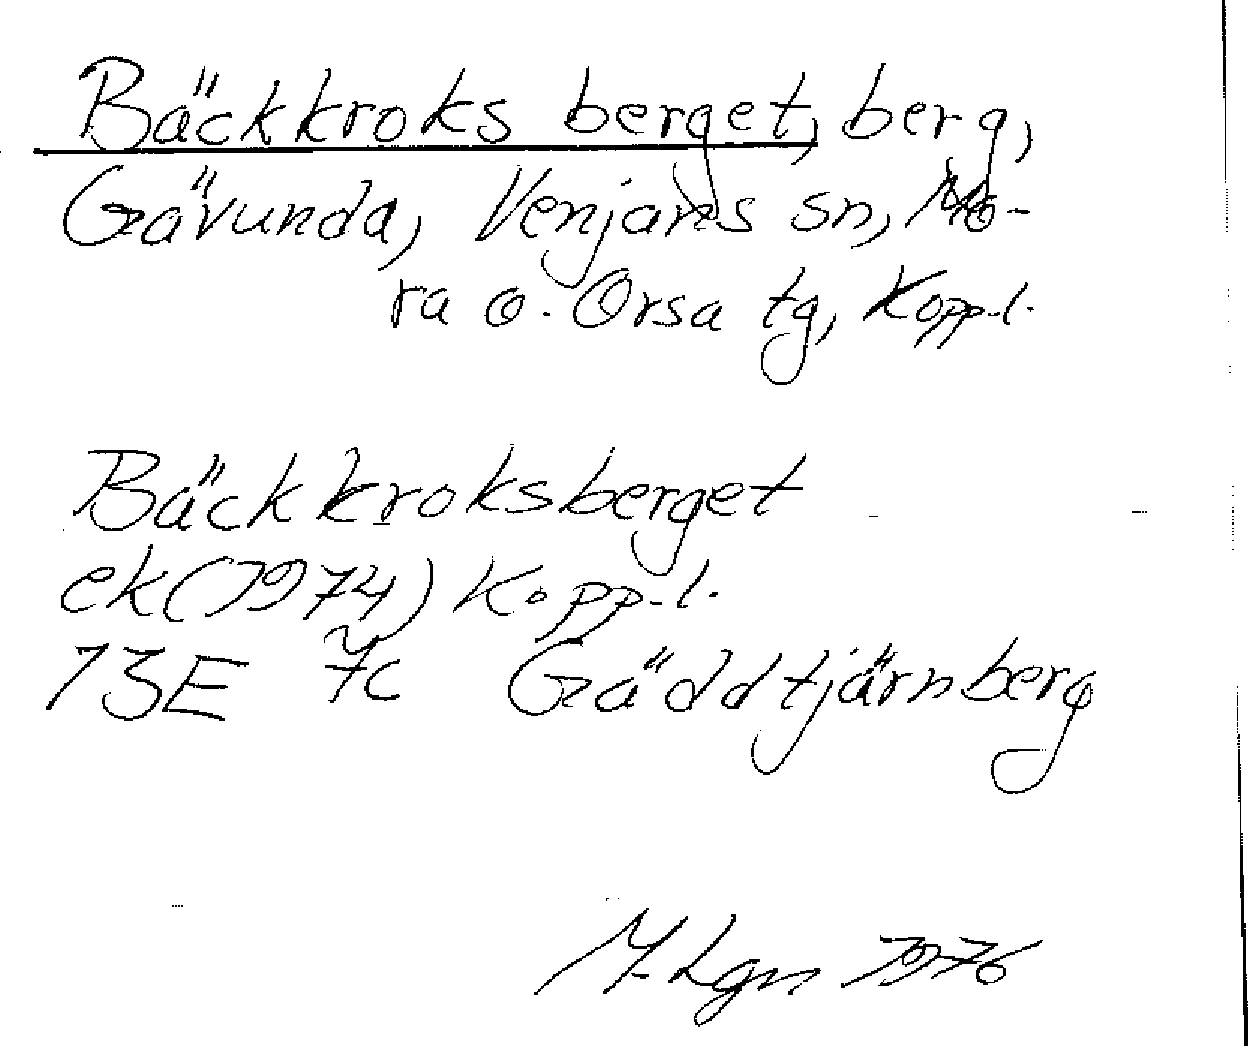 Bäckkroks berget, berg,
Gävunda, Venjans sn, Mo-
ra o. Orsa tg, Kopp.l.
Bäckkroksberget
ek (1974) Kopp.l.
13E 7c Gäddtjärnberg
M. Lgn 1976